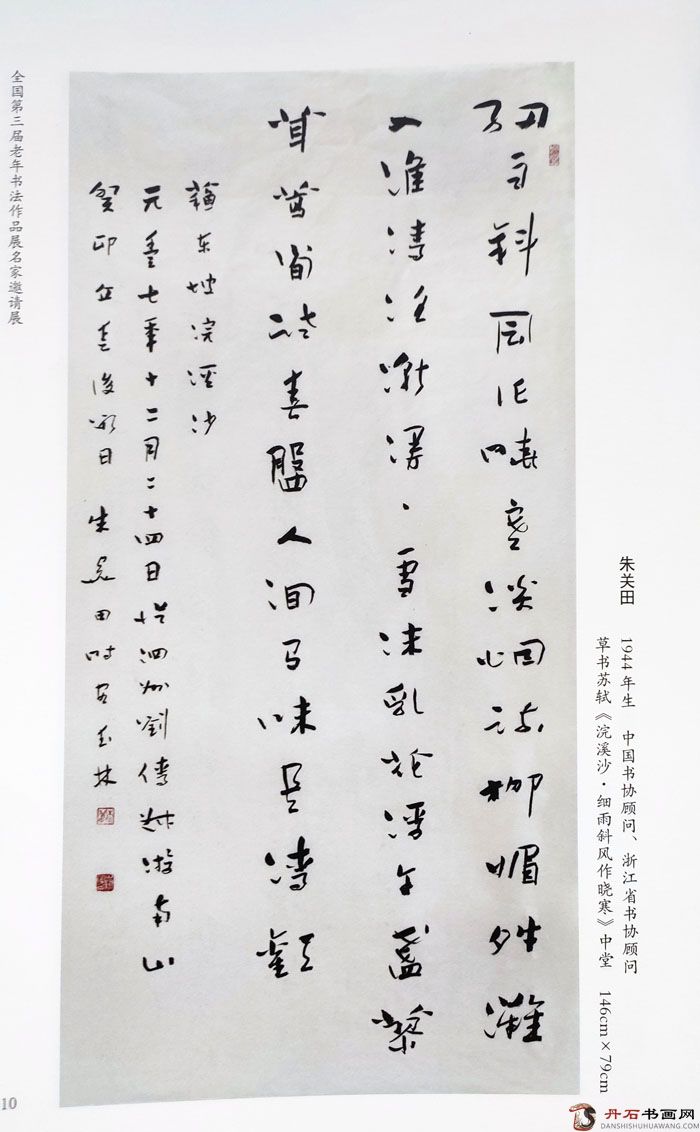 朱关田 1944年生 中国书协顾问、浙江省书协顾问
草书苏轼《浣溪沙·细雨斜风作晓寒》中堂 146cm×79cm
細雨斜風作曉寒淡煙疏柳媚晴灘
入淮清洛漸漫、雪沫乳花浮午盞蓼
茸蒿筍試春盤人間有味是清歡
蘇東坡浣溪沙
元豐七年十二月二十四日從泗州劉倩叔游南山
癸卯立夏後日朱關田時客林
全国第三届老年书法作品展名家邀请展
10
丹石书画网
DANSHISHUHUAWANG.COM